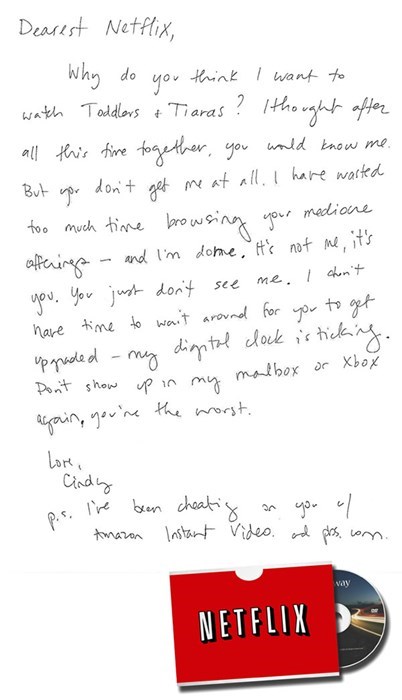 Dearest Netflix,
Why do you think I want to
watch Toddlers + Tiaras? I thought after
all this time together, you would know me.
But you don't get me at all. I have wasted
too much time browsing your mediocre
offerings – and I'm done. It's not me, it's
you. You just don't see me. I don't
have time to wait around for you to get
upgraded – my digital clock is ticking.
Don't show up in my mailbox or Xbox
again, you're the worst.
Love,
Cindy
p.s. I've been cheating on you w/
Amazon Instant Video. and pbs.com.
NETFLIX
way